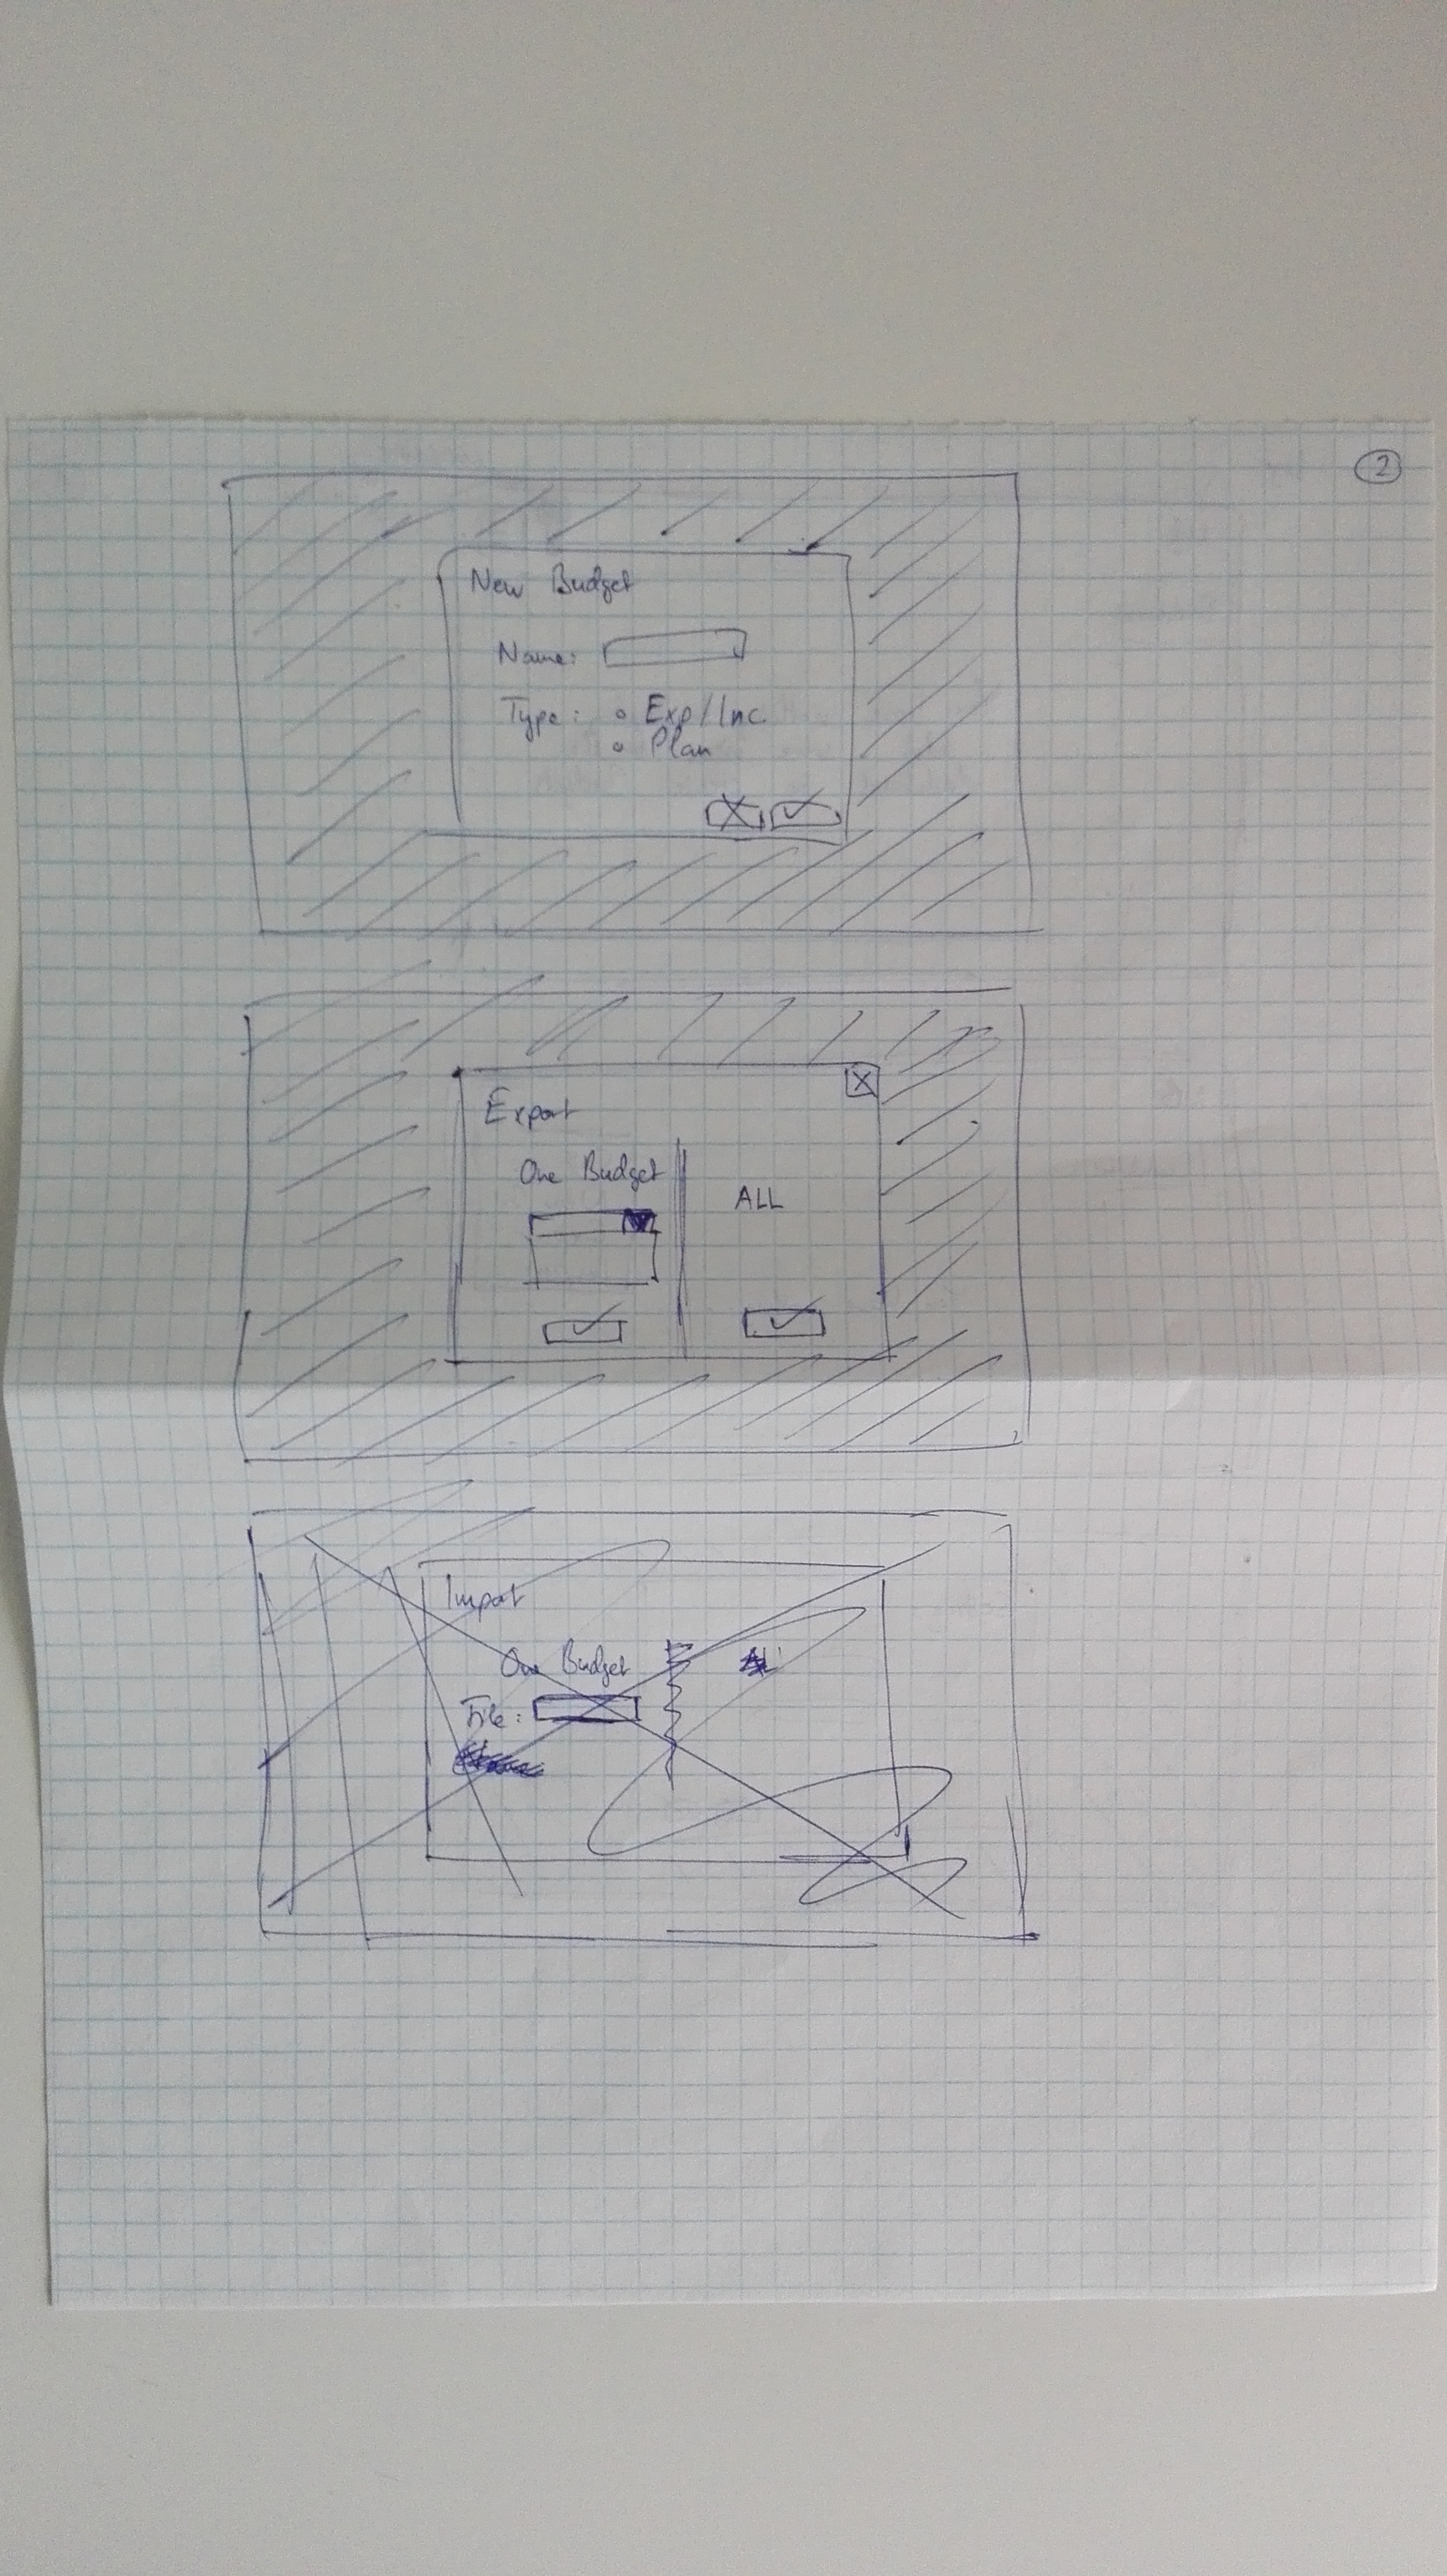 2
New Budget
Name:
Type: Exp/Inc.
Plan
Export
One Budget
ALL
Import
One Budget
File: